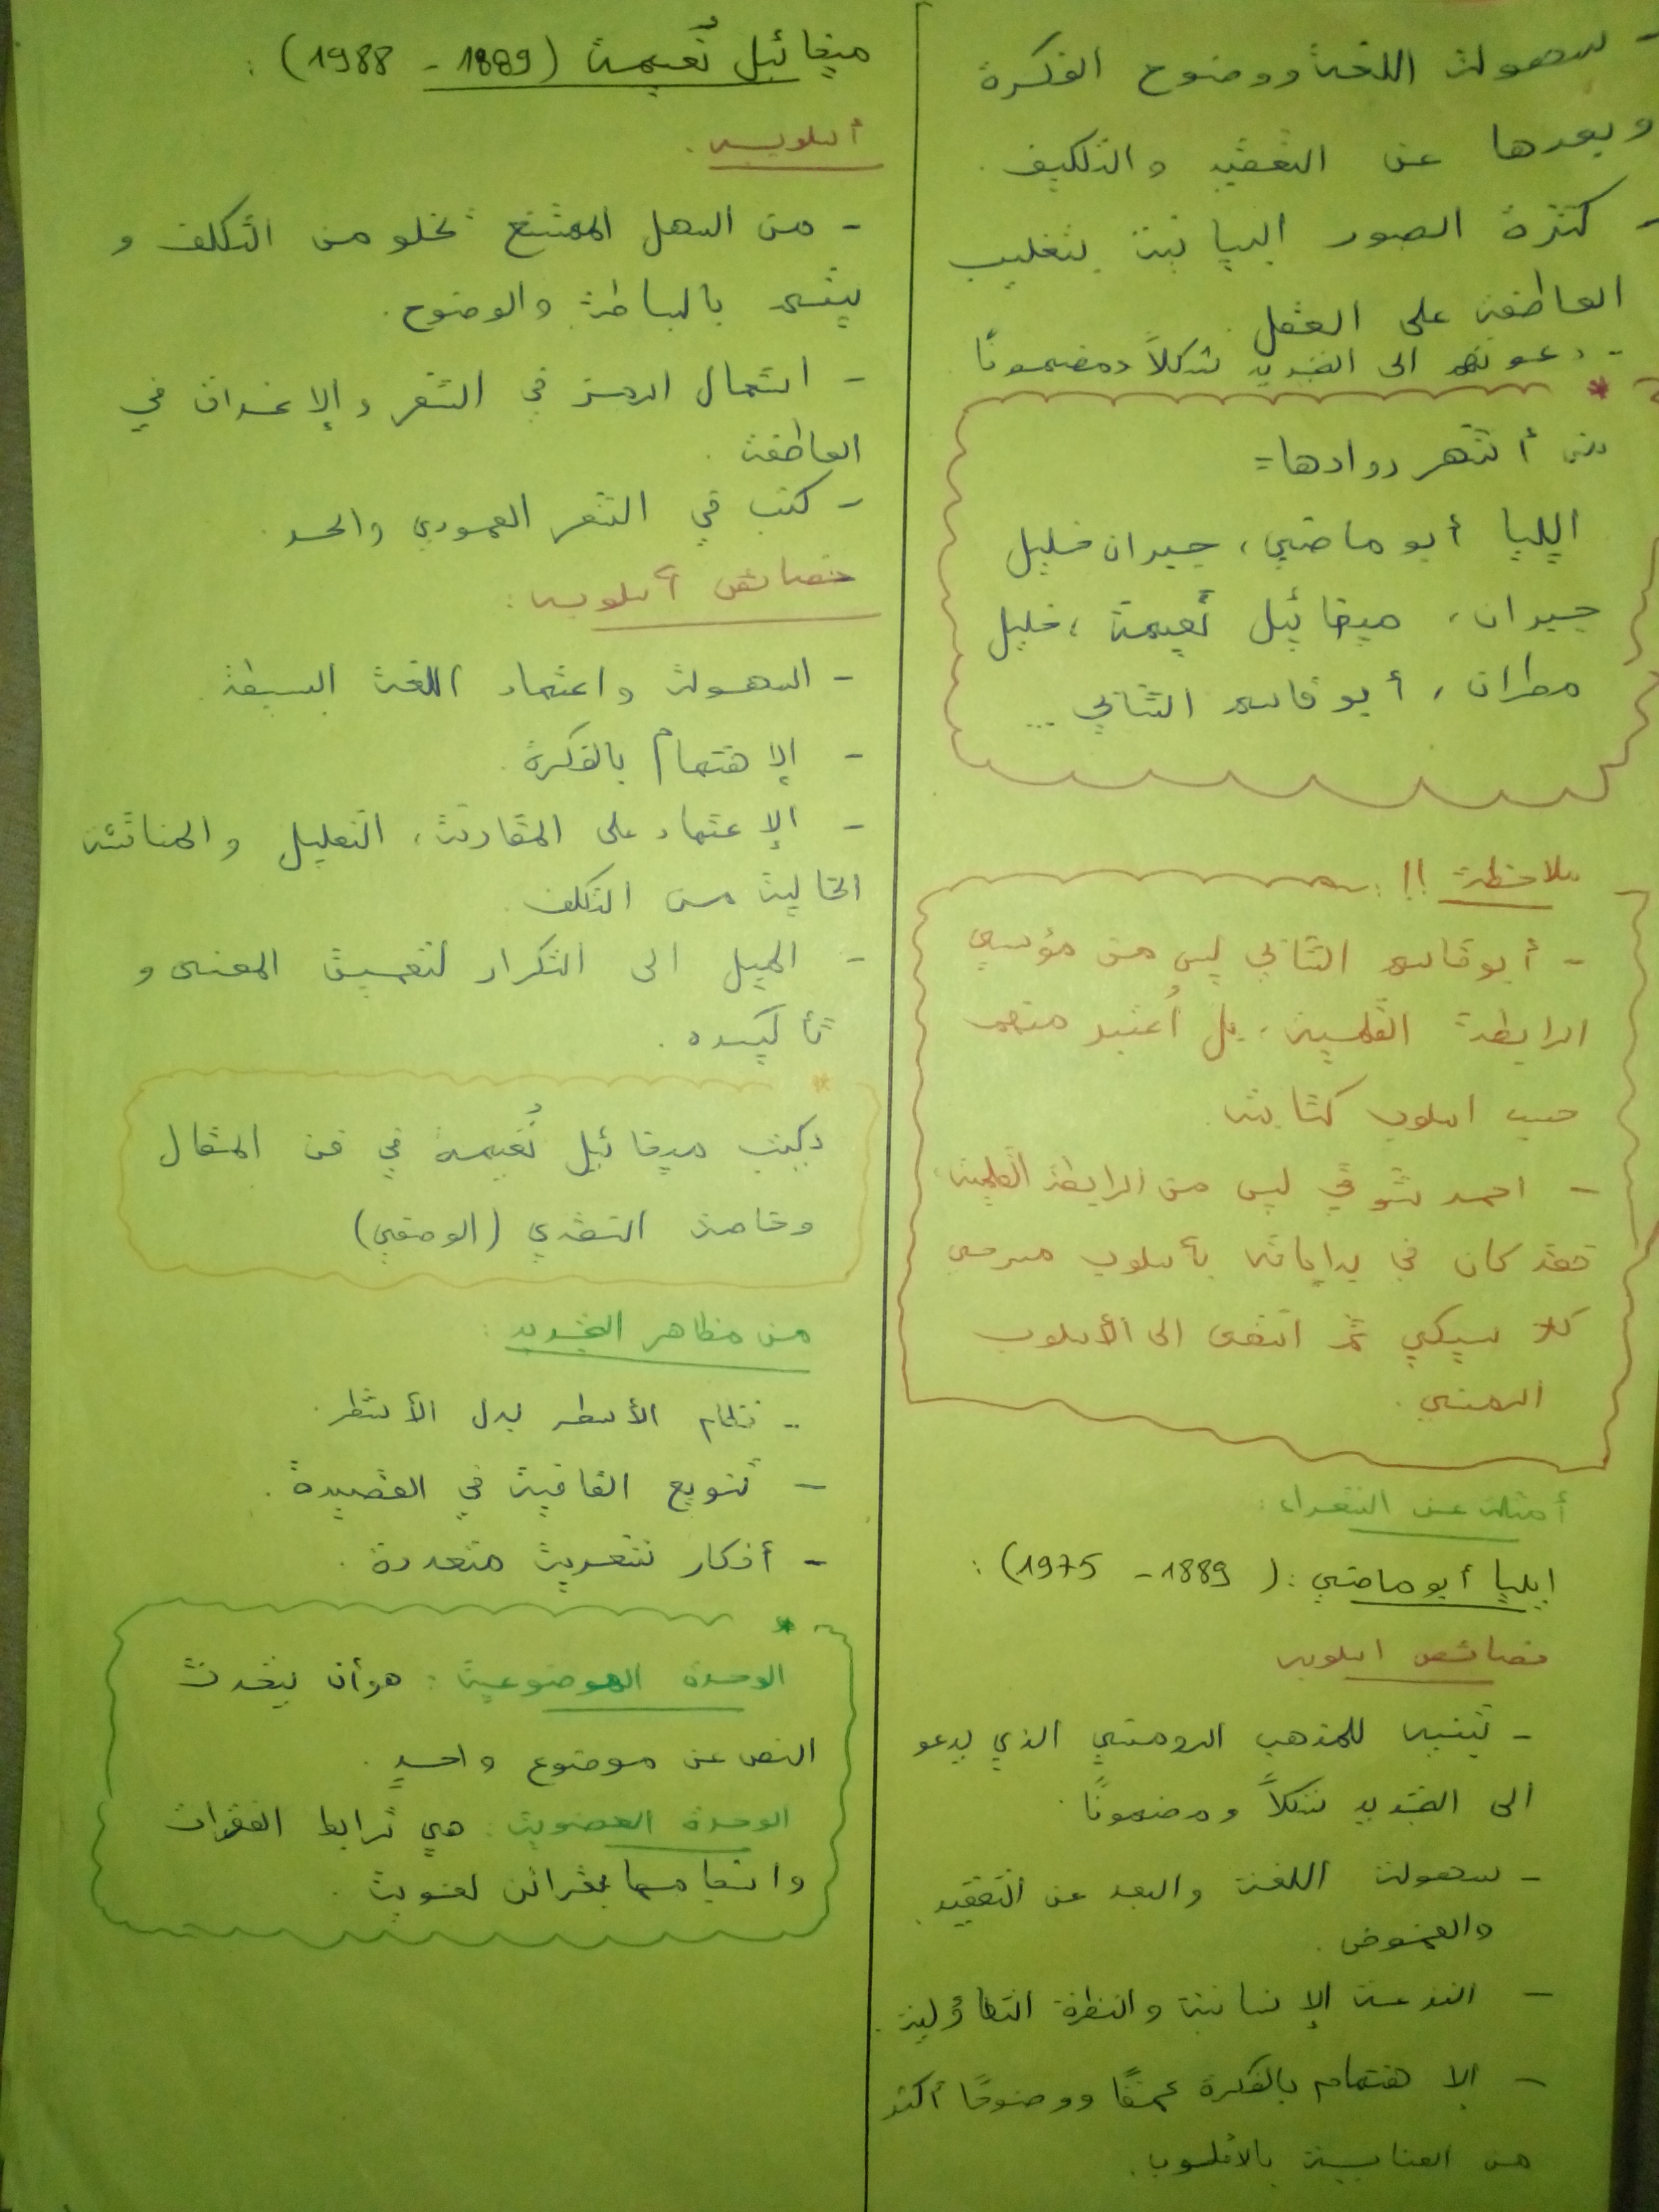 - سهولة اللغة ووضوح الفكرة
وبعدها عن التعقيد والتكليف.
- كثرة الصور البيانية بتغليب
العاطفة على العقل.
- دعوتهم الى التجديد شكلاً ومضمونًا.
من أشهر روادها=
إليليا أبو ماضي، جبران خليل
جبران، ميخائيل نُعيمة، خليل
مطران، أبو قاسم الشابي...
ملاحظة!!:
- أبو قاسم الشابي ليس من مؤسسي
الرابطة القلمية، بل أُعتبر منهم
حسب اسلوب كتابته.
- احمد شوقي ليس من الرابطة القلمية،
فقد كان في بداياته بأسلوب مسرحي
كلاسيكي ثم انتقى الى الأسلوب
الرمنسي.
أمثلة عن الشعراء:
إيليا أبو ماضي: (1889 - 1975):
خصائص اسلوبه
- تبنيه للمذهب الرومنسي الذي يدعو
الى التجديد شكلاً ومضمونًا.
- سهولة اللغة والبعد عن التعقيد
والغموض.
- النزعة الإنسانية والنظرة التفاؤلية.
- الإهتمام بالفكرة عمقًا ووضوحًا أكثر
من العناية بالأسلوب.
ميخائيل نُعيمة (1889 - 1988):
أسلوبه.
- من السهل الممتنع تخلو من التكلف و
يتسم بالبساطة والوضوح.
- استعمال الرمز في الشعر والإغراق في
العاطفة.
- كتب في الشعر العمودي والحر.
خصائص أسلوبه:
- السهولة واعتماد اللغة البسيطة.
- الإهتمام بالفكرة.
- الإعتماد على المقارنة، التعليل والمناقشة
الخالية من التكلف.
- الميل الى التكرار لتعميق المعنى و
تأكيده.
وكتب ميخائيل نُعيمة في فن المقال
وخاصة النقدي (الوصفي)
من مظاهر التجديد:
- نظام الأسطر بدل الأشطر.
- تنويع القافية في القصيدة.
- أفكار شعرية متعددة.
الوحدة الموضوعية: هو أن يتحدث
النص عن موضوع واحدٍ.
الوحدة العضوية: هي ترابط الفقرات
وانسجامها بقرائن لغوية.